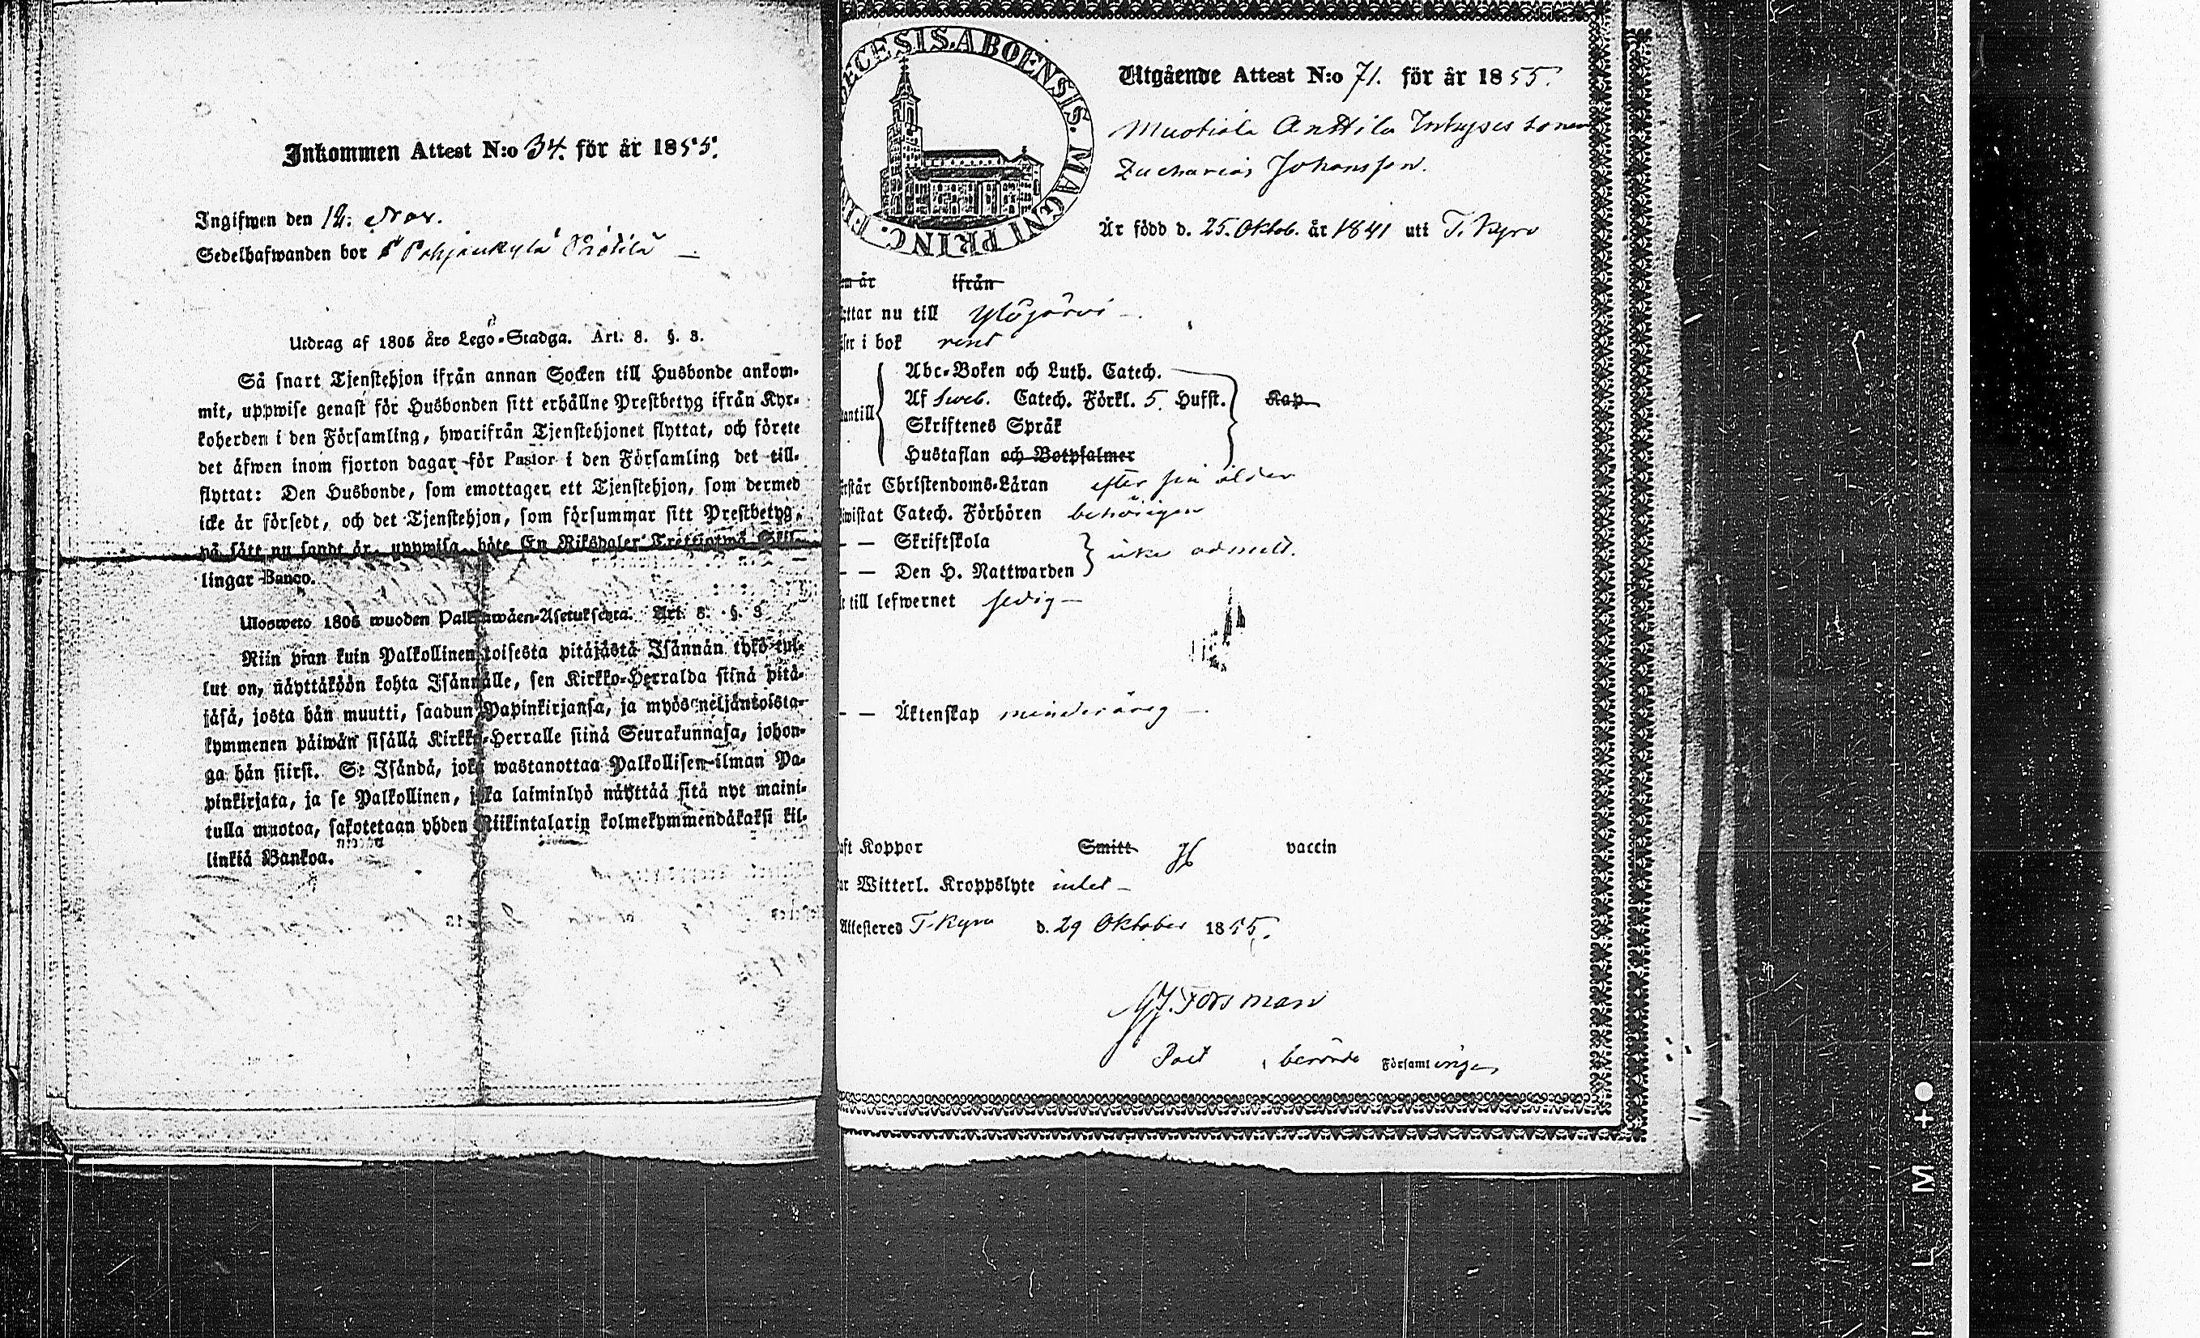 Inkommen Attest N:o 34. för år 1855.
Ingifwen den 12. Nov.
Sedelhafwanden bor Pohjankylä
Utdrag af 1805 års Lego-Stadga. Art. 8. §. 3.
Så snart Tjenstehjon ifrån annan Socken till Husbonde ankom-
mit, uppwise genast för Husbonden sitt erhållne Prestbetyg ifrån Kyr-
koherden i den Församling, hwarifrån Tjenstehjonet flyttat, och förete
det äfwen inom fjorton dagar för Pastor i den Församling det till-
flyttat: Den Husbonde, som emottager ett Tjenstehjon, som dermed
icke är försedt, och det Tjenstehjon, som försummar sitt Prestbetyg,
på sätt nu sagdt är, uppwisa, böte En Riksdaler Trettiotwå Skil-
lingar Banco.
Ulosweto 1805 wuoden Palkanwäen-Asetuksesta. Art. 8. §. 3
Niin pian kuin Palkollinen toisesta pitäjästä Isännän tykö tul-
lut on, näyttäköön kohta Isännälle, sen Kirkko-Herralda siinä pitä-
jäsä, josta hän muutti, saadun Papinkirjansa, ja myös neljäntoista-
kymmenen päiwän sisällä Kirkko-Herralle siinä Seurakunnasa, johon-
ga hän siirsi. Se Isändä, joka wastanottaa Palkollisen ilman Pa-
pinkirjata, ja se Palkollinen, joka laiminlyö näyttää sitä nyt maini-
tulla muotoa, sakotetaan yhden Riikintalarin kolmekymmendäkaksi kil-
linkiä Bankoa.
ECESIS. ABOENSIS. MAGNI PRINC. F
Utgående Attest N:o 71. för år 1855.
Muotiala Anttila Inhyses sonen
Zacharias Johansson.
Är född d. 25. Oktob. år 1841 uti T. Kyro
om år ifrån
yttar nu till Ylöjärvi
äser i bok rent
Abc-Boken och Luth. Catech.
Af Sweb. Catech. Förkl. 5. Husst. Kap
antill
Skriftenes Språk
Hustaflan och Botpsalmer
rstår Christendoms-Läran efter sin ålder
wistat Catech. Förhören behörigen
— — Skriftskola
icke admitt.
— — Den H. Nattwarden
t till lefwernet sedig
— — Äktenskap minderårig
aft Koppor Smitt vaccin
ar Witterl. Kroppslyte intet
Attesteres T. Kyro d. 29 Oktober 1855.
Forsman
Past i berörde Församlingen